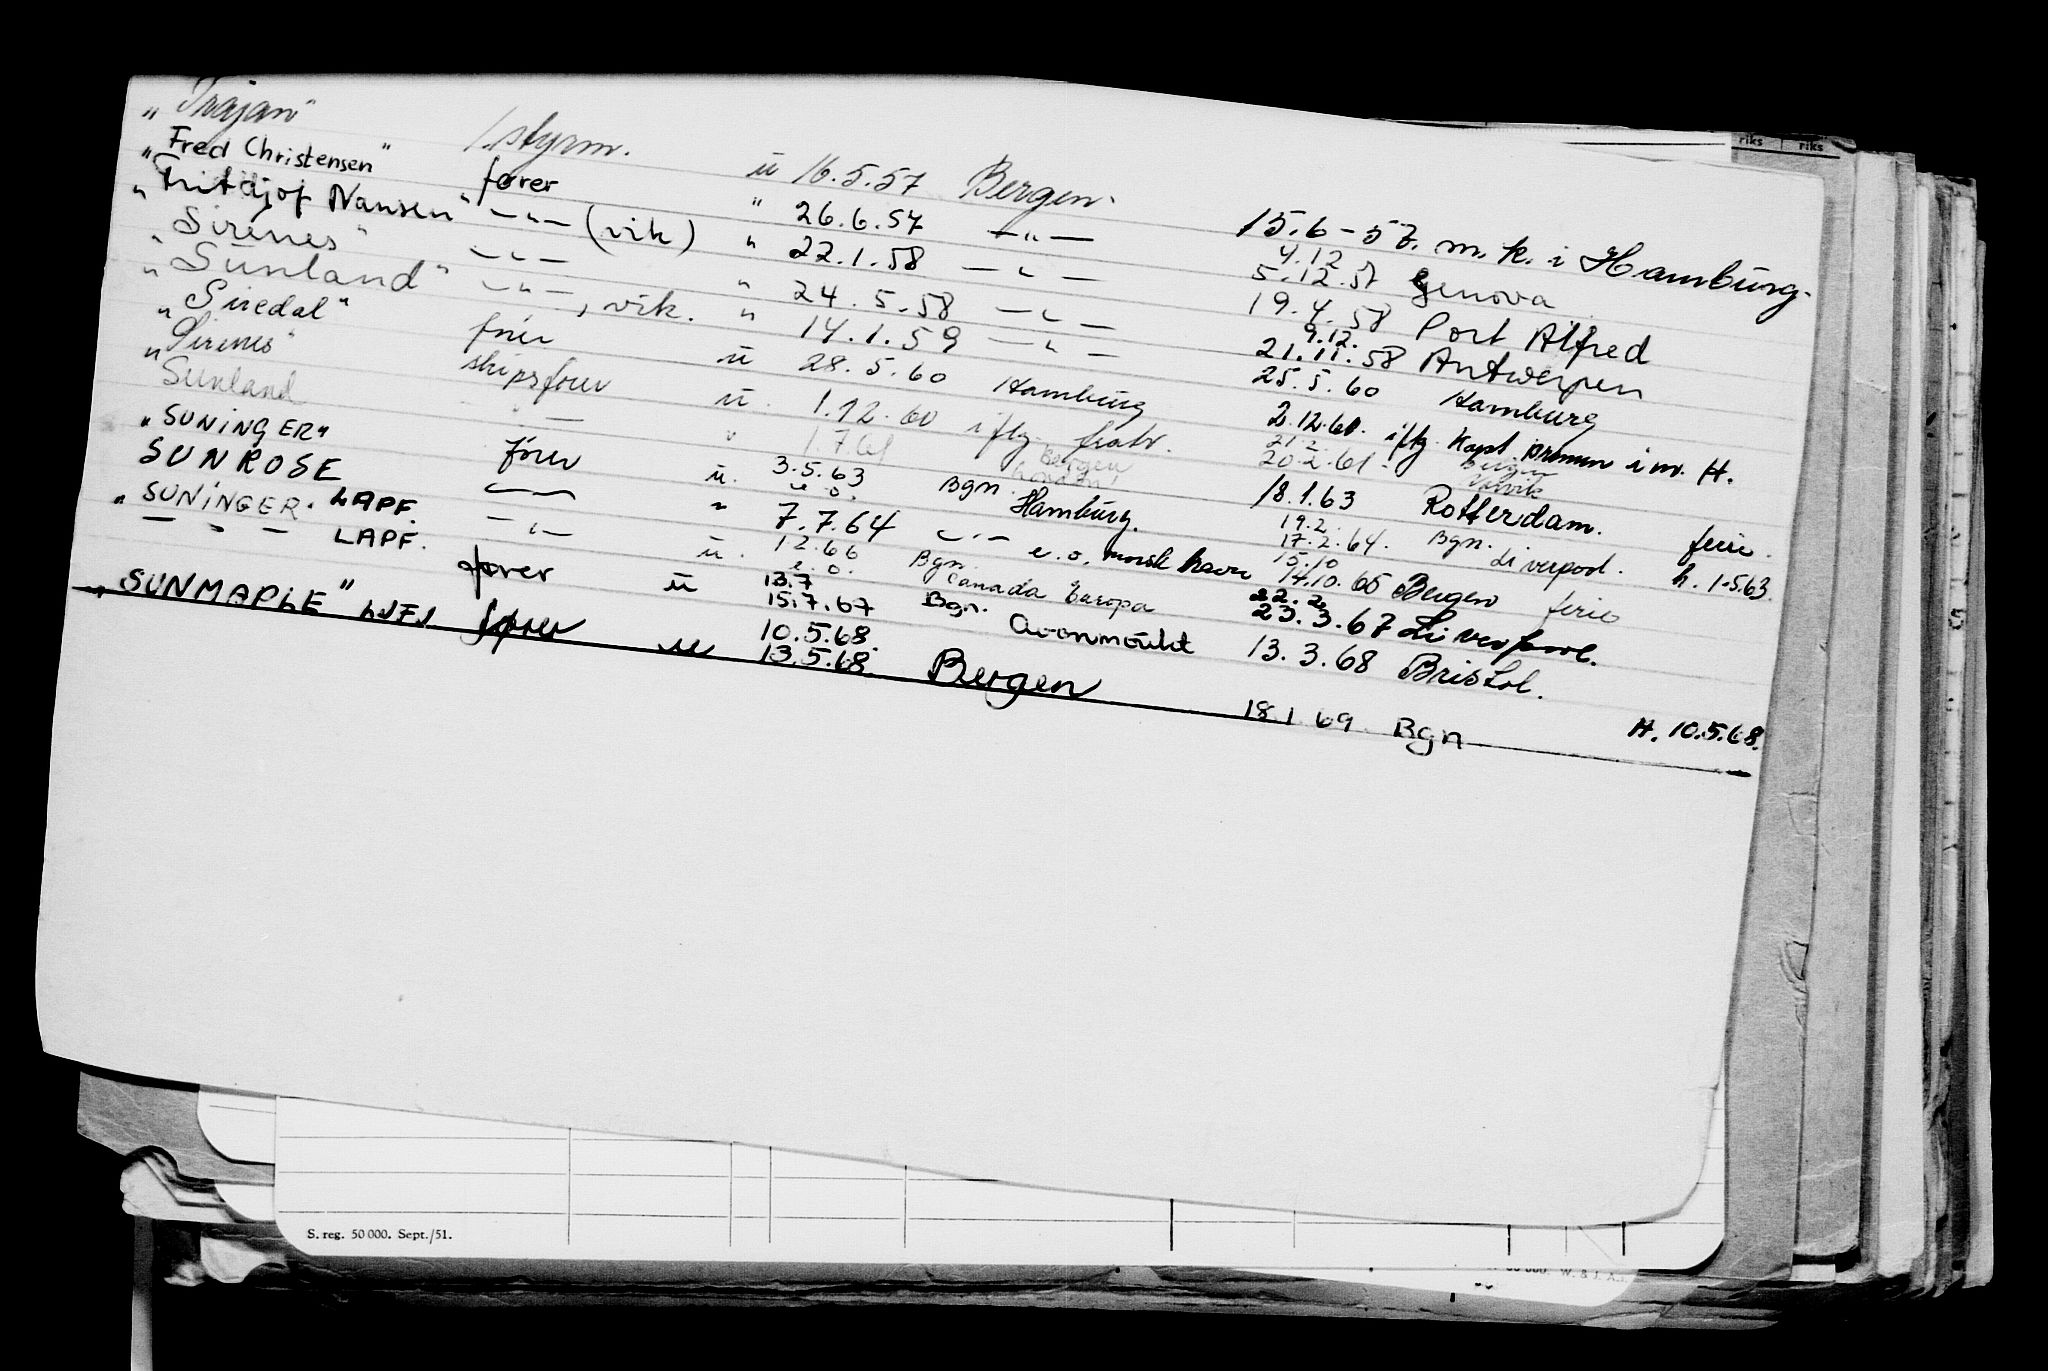 „ Trajan" 1.styrm. ū 16.5.57 Bergen. 15.6-57. m.k. i Hamburg.
„ Fred Christensen" fører " 26.6.57 —"— 4.12 5.12.57 Genova
„ Fritdjof Nansen" —"— (vik) " 22.1.58 —"— 19.4.58 Port Alfred
„ Sirenes" —"— " 24.5.58 —"— 9.12. 21.11.58 Antwerpen
„ Sunland" —"—, vik. " 14.1.59 —"— 25.5.60 Hamburg
„ Siredal" fører ū 28.5.60 Hamburg 2.12.60. iflg. Kapt. i m. H.
„ Sirenes" skipsfører ū. 1.12.60 iflg. 20.2.61
" Sunland — " 1.7.61 Bergen
„ SUNINGER" fører ū. 3.5.63 Bgn. 18.1.63 Rotterdam. ferie.
SUNROSE " e.o. Hamburg. 19.2. 17.2.64. Bgn. Liverpool. h. 1.5.63.
„ SUNINGER. LAPF. —"— 7.7.64 e.o. norsk havn 15.10 14.10.65 Bergen ferie
— " — LAPF. fører ū. 12.66 e.o. Bgn. Canada Europa 22.2 23.3.67 Liverpool.
ū 13.7 15.7.67 Bgn. Avonmouht 13.3.68 Bristol.
„ SUNMAPLE" fører ū 10.5.68. 13.5.68. Bergen 18.1.69. Bgn H. 10.5.68.
riks riks
S. reg. 50 000. Sept./51.